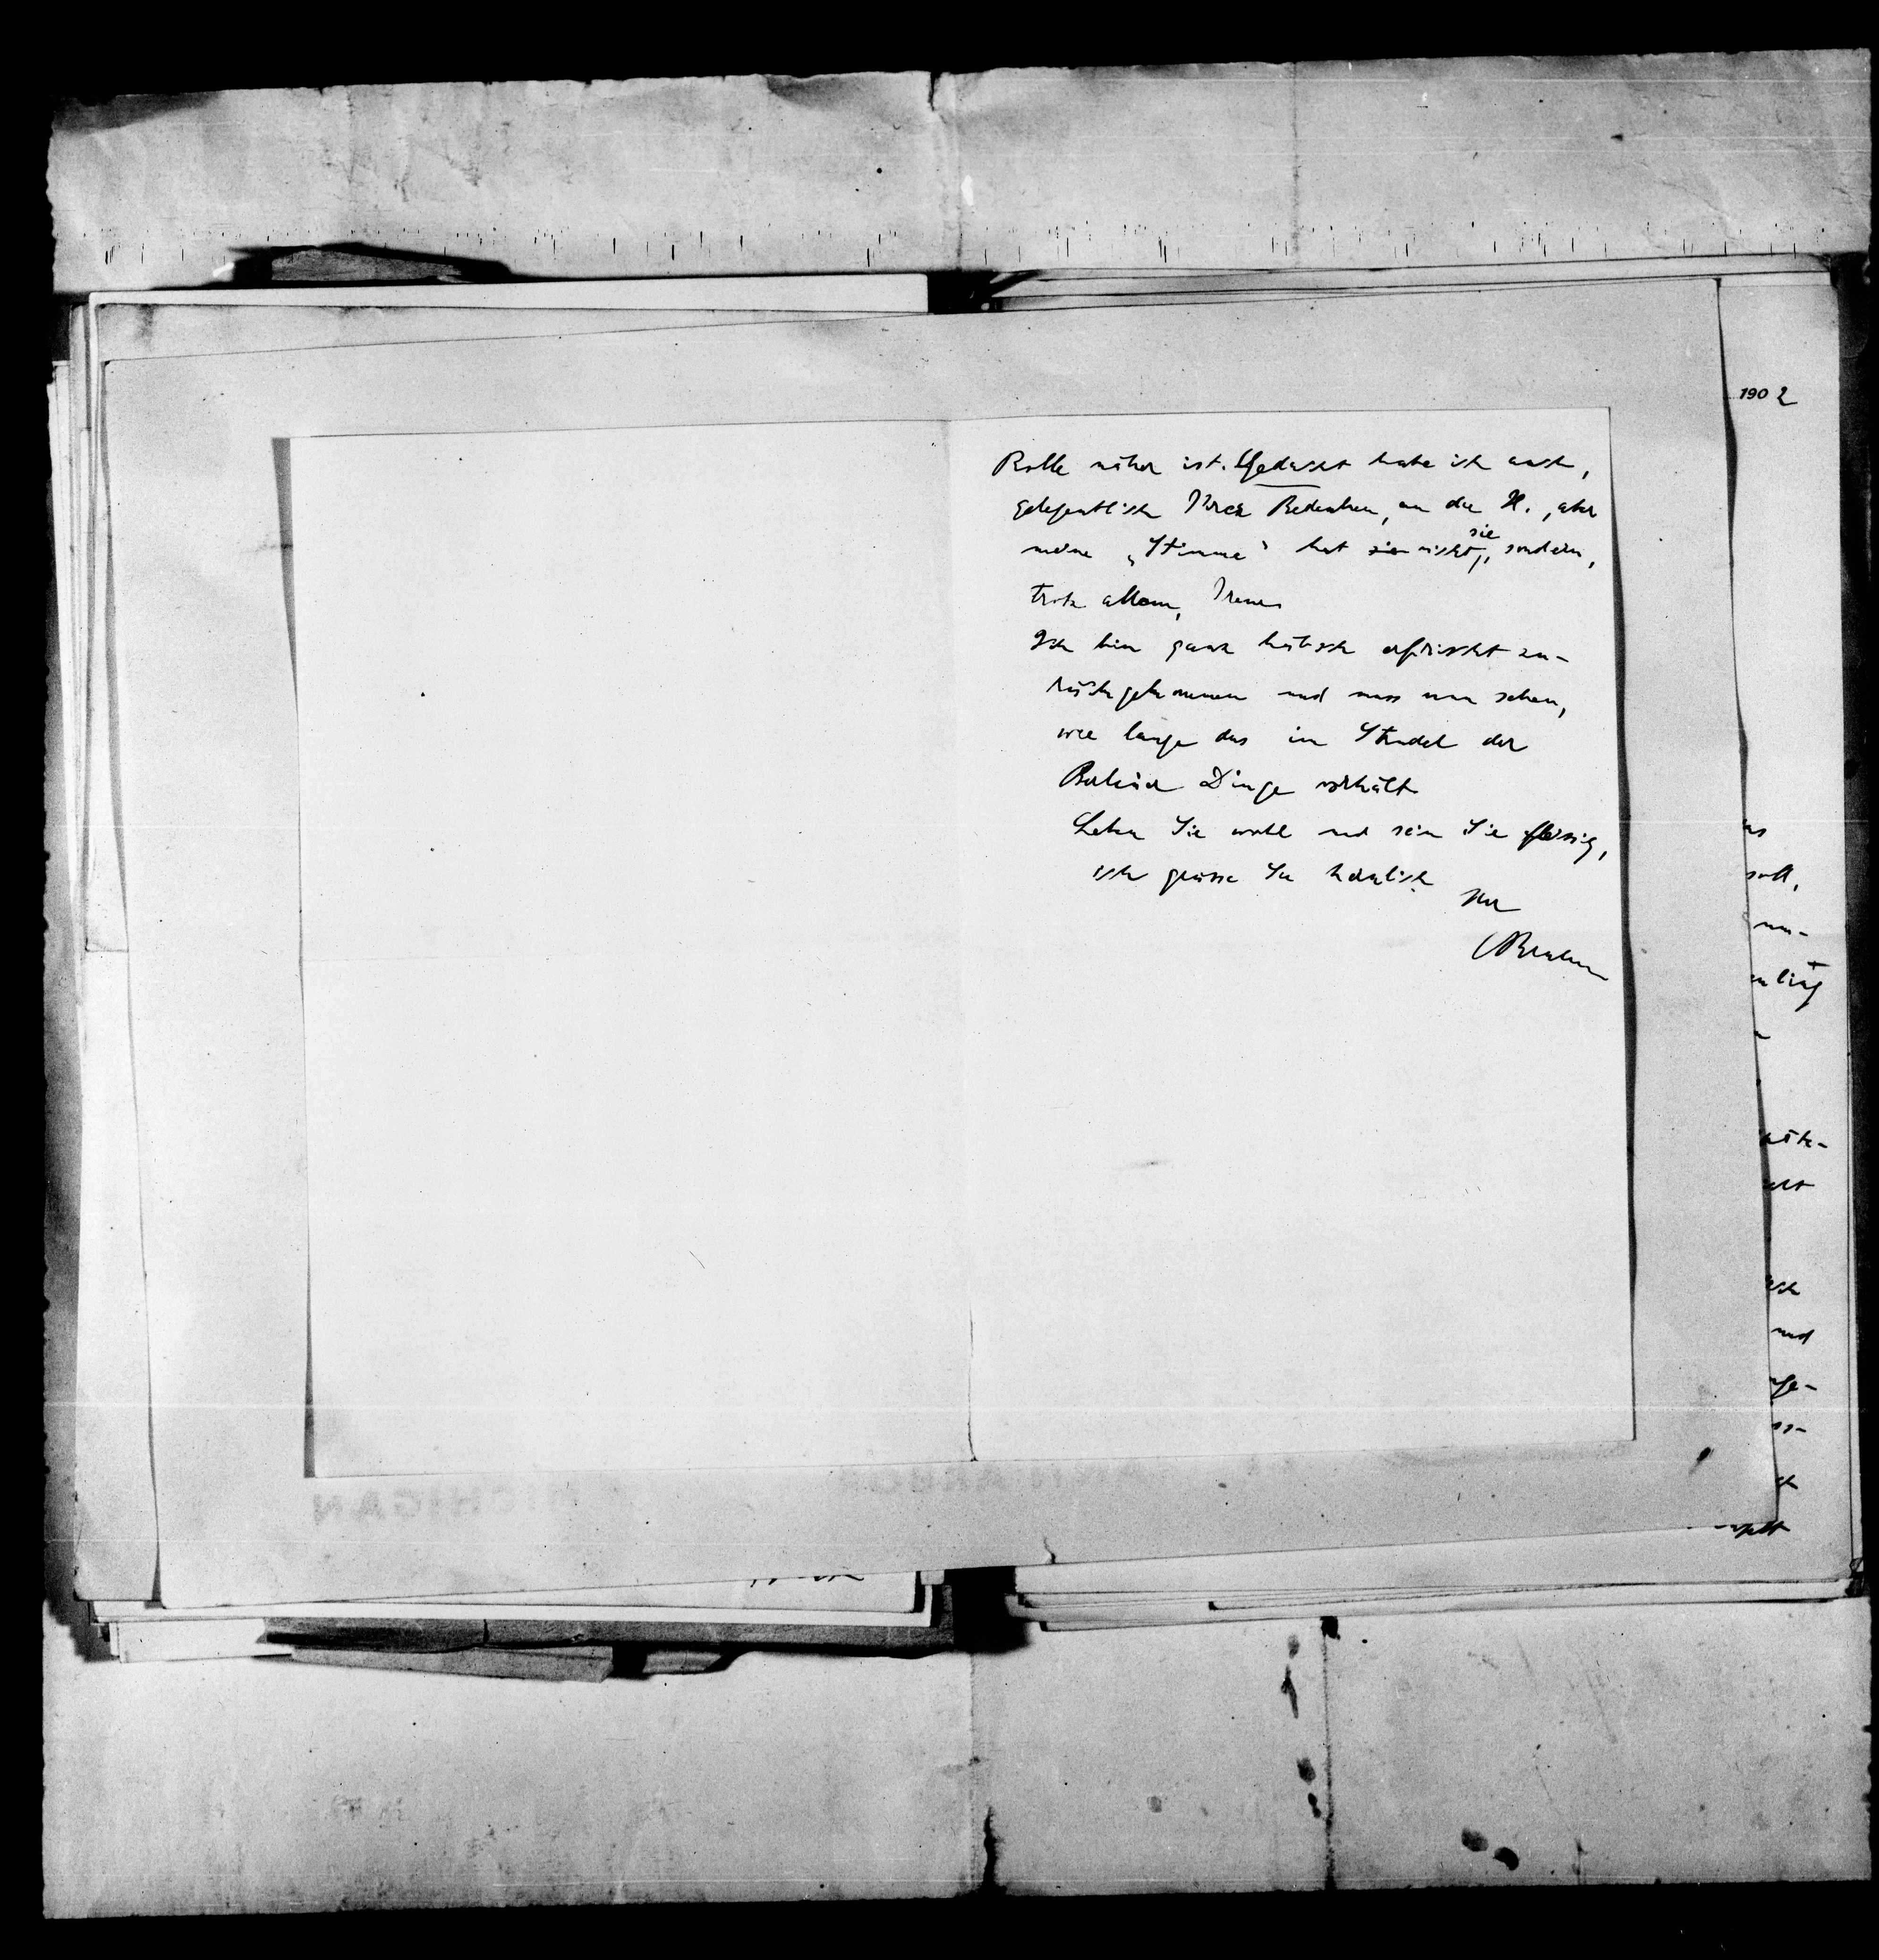 Rolle näher ist. Gedacht habe ich auch,
gelegentlich Ihrer Bedenken, an die H., aber
meine „Stimme“ hat nicht sie, sondern,
trotz allem, Irene.
Ich bin ganz hübsch erfrischt zu-
rückgekommen und muss nun sehen,
wie lange das im Strudel der
Berliner Dinge vorhält.
Leben Sie wohl und sein Sie fleissig,
ich grüsse Sie herzlich.
Ihr
Brahm
1902
soll,
und